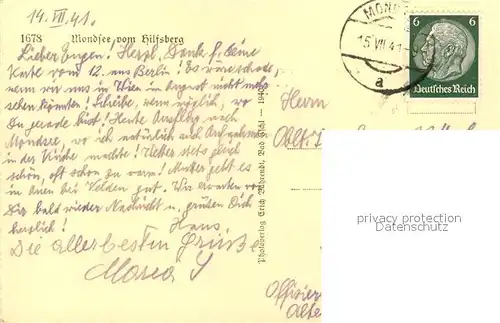 14. VII. 41.
1678 Mondsee vom Hilfsberg
Lieber Eugen! Herzl. Dank f. Deine
Karte vom 12. aus Berlin! Es wäre schade,
wenn wir uns in Wien im August nicht mehr
sehen könnten! Schreibe, wenn möglich, wo
Du gerade bist! Heute Ausflug nach
Mondsee, wo ich natürlich auch Aufnahmen
in der Kirche machte! Wetter stets gleich
schön, oft schon zu warm! Mutter geht es
in Auen bei Velden gut. Wir erwarten von
Dir bald wieder Nachricht u. grüßen Dich
herzlich! Hans.
Die allerbesten Grüße
Maria
Photoverlag Erich Bährendt, Bad Ischl
MOND
15 VII 41
a
6 6
Deutsches Reich
Herrn
Oblt.
Offizier
Alte
privacy protection
Datenschutz